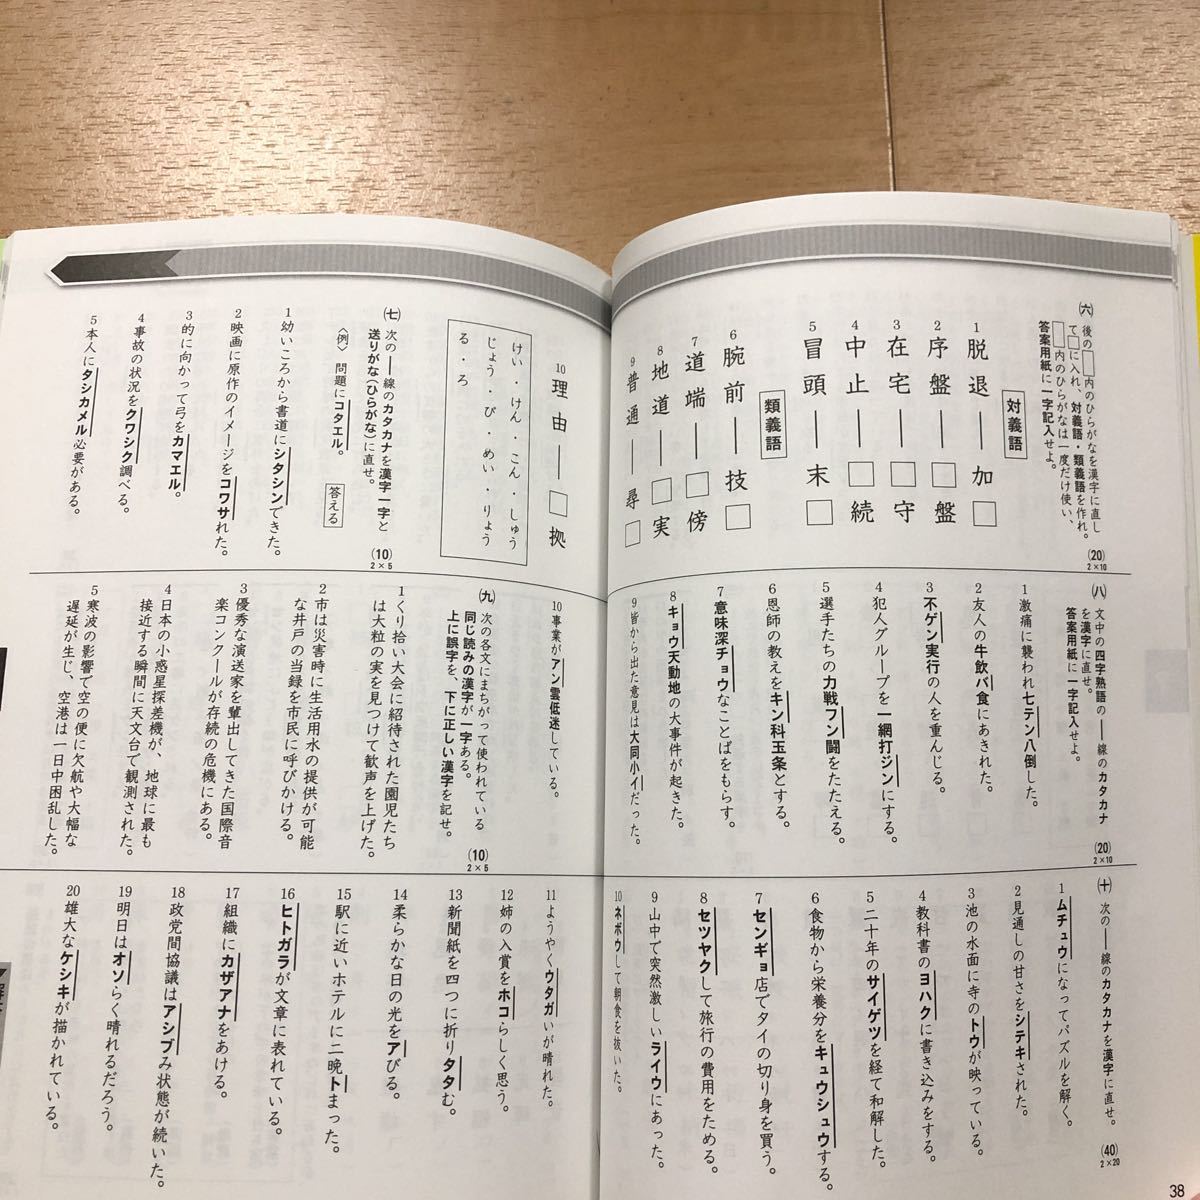 ㈥ 後の□内のひらがなを漢字に直し
て□に入れ、対義語・類義語を作れ。
□内のひらがなは一度だけ使い、
答案用紙に一字記入せよ。
(20)
2×10
対義語
1 脱退―加□
2 序盤―□盤
3 在宅―□守
4 中止―□続
5 冒頭―末□
類義語
6 腕前―技□
7 道端―□傍
8 地道―□実
9 普通―尋□
10 理由―□拠
けい・けん・こん・しゅう
じょう・び・めい・りょう
る・ろ
㈦ 次の―線のカタカナを漢字一字と
送りがな(ひらがな)に直せ。
(10)
2×5
〈例〉問題にコタエル。 答える
1 幼いころから書道にシタシンできた。
2 映画に原作のイメージをコワサれた。
3 的に向かって弓をカマエル。
4 事故の状況をクワシク調べる。
5 本人にタシカメル必要がある。
㈧ 文中の四字熟語の―線のカタカナ
を漢字に直せ。
答案用紙に一字記入せよ。
(20)
2×10
1 激痛に襲われ七テン八倒した。
2 友人の牛飲バ食にあきれた。
3 不ゲン実行の人を重んじる。
4 犯人グループを一網打ジンにする。
5 選手たちの力戦フン闘をたたえる。
6 恩師の教えをキン科玉条とする。
7 意味深チョウなことばをもらす。
8 キョウ天動地の大事件が起きた。
9 皆から出た意見は大同小イだった。
10 事業がアン雲低迷している。
㈨ 次の各文にまちがって使われている
同じ読みの漢字が一字ある。
上に誤字を、下に正しい漢字を記せ。
(10)
2×5
1 くり拾い大会に紹待された園児たち
は大粒の実を見つけて歓声を上げた。
2 市は災害時に生活用水の提供が可能
な井戸の当録を市民に呼びかける。
3 優秀な演送家を輩出してきた国際音
楽コンクールが存続の危機にある。
4 日本の小惑星探差機が、地球に最も
接近する瞬間に天文台で観測された。
5 寒波の影響で空の便に欠航や大幅な
遅延が生じ、空港は一日中困乱した。
㈩ 次の―線のカタカナを漢字に直せ。
(40)
2×20
1 ムチュウになってパズルを解く。
2 見通しの甘さをシテキされた。
3 池の水面に寺のトウが映っている。
4 教科書のヨハクに書き込みをする。
5 二十年のサイゲツを経て和解した。
6 食物から栄養分をキュウシュウする。
7 センギョ店でタイの切り身を買う。
8 セツヤクして旅行の費用をためる。
9 山中で突然激しいライウにあった。
10 ネボウして朝食を抜いた。
11 ようやくウタガいが晴れた。
12 姉の入賞をホコらしく思う。
13 新聞紙を四つに折りタタむ。
14 柔らかな日の光をアびる。
15 駅に近いホテルに二晩トまった。
16 ヒトガラが文章に表れている。
17 組織にカザアナをあける。
18 政党間協議はアシブみ状態が続いた。
19 明日はオソらく晴れるだろう。
20 雄大なケシキが描かれている。
38